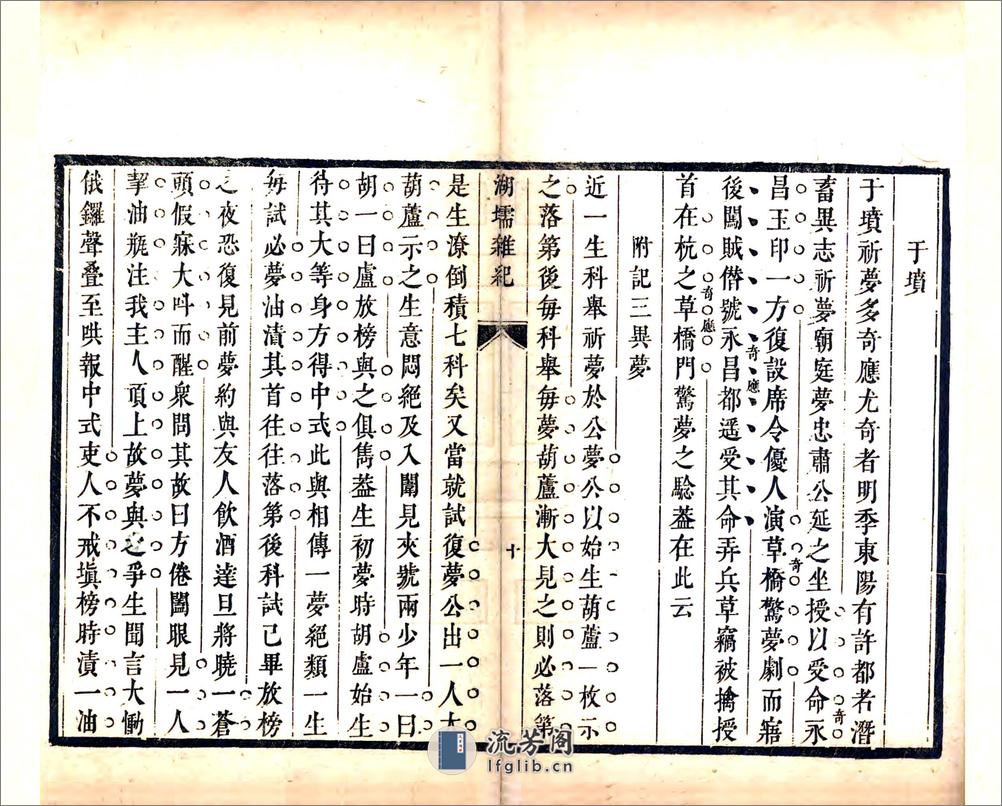 于墳
于墳祈夢多奇應尤奇者明季東陽有許都者潛
畜異志祈夢廟庭夢忠肅公延之坐授以受命永
昌玉印一方復設席令優人演草橋驚夢劇而寤
後闖賊僭號永昌都遥受其命弄兵草竊被擒授
首在杭之草橋門驚夢之驗葢在此云
奇
奇
奇應
奇應
附記三異夢
近一生科舉祈夢於公夢公以始生葫蘆一枚示
之落第後每科舉每夢葫蘆漸大見之則必落第
湖壖雜紀
十
是生潦倒積七科矣又當就試復夢公出一人大
葫蘆示之生意悶絕及入闈見夾號兩少年一曰
胡一曰盧放榜與之俱雋葢生初夢時胡盧始生
待其大等身方得中式此與相傳一夢絕類一生
每試必夢油漬其首往往落第後科試已畢放榜
之夜恐復見前夢約與友人飲酒達旦將曉一蒼
頭假寐大呌而醒衆問其故曰方倦闔眼見一人
挈油瓶注我主人頂上故夢與之爭生聞言大慟
俄鑼聲叠至哄報中式吏人不戒填榜時漬一油
流芳阁
lfglib.cn